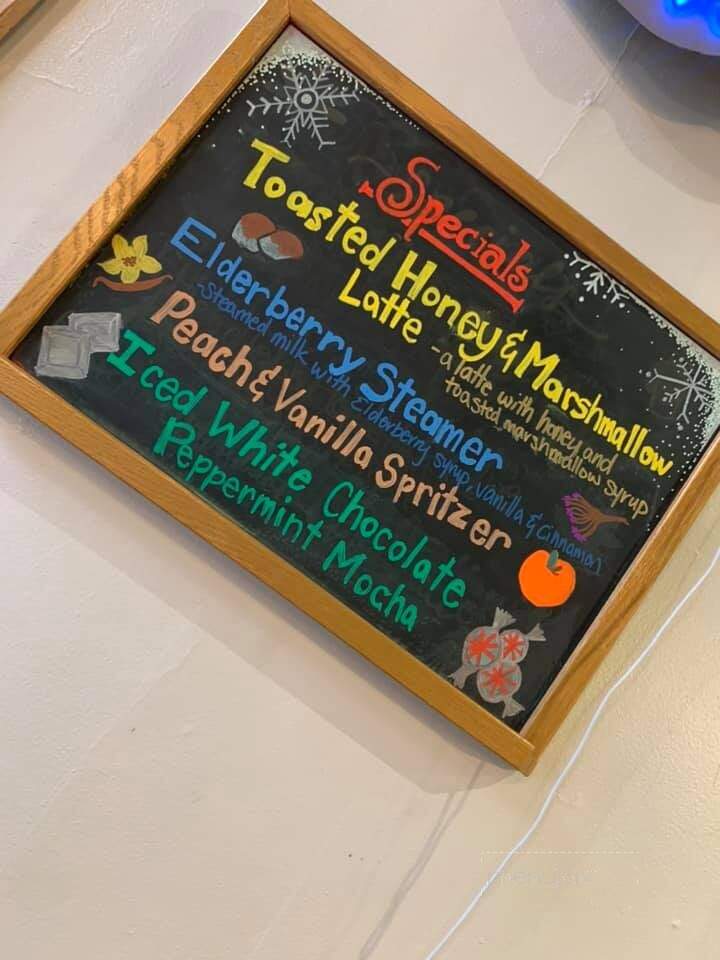 Specials
Toasted Honey & Marshmallow
Latte - a latte with honey and
toasted marshmallow syrup
Elderberry Steamer
-Steamed milk with Elderberry syrup, vanilla & Cinnamon
Peach & Vanilla Spritzer
Iced White Chocolate
Peppermint Mocha